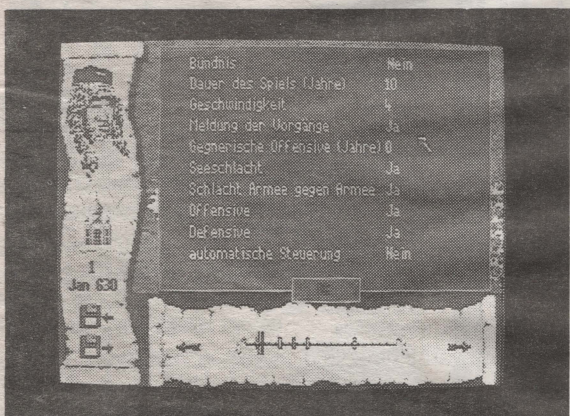 Bündnis Nein
Dauer des Spiels (Jahre) 10
Geschwindigkeit 4
Meldung der Vorgänge Ja
Gegnerische Offensive (Jahre) 0
Seeschlacht Ja
Schlacht Armee gegen Armee Ja
Offensive Ja
Defensive Ja
automatische Steuerung Nein
1
Jan 630
OK